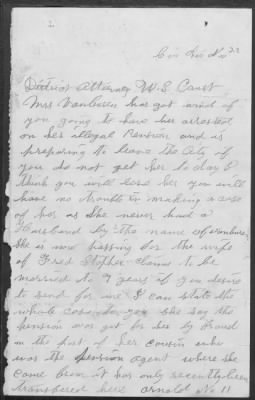 District Attorney U.S Court
Mrs Vanburen has got wind of
you going to have her arrested
on her illegal Pension and is
preparing to leave the City if
you do not get her to day I
think you will lose her you will
have no trouble in making a case
of her as she never had a
Husband by the name of
She is now passing for the wife
of Fred claims to be
married to 7 years if you desire
to send for me I can state the
whole case to you she say the
pension was got for her by fraud
in the part of her cousin who
was the pension agent where she
came from it has only recently been
transfered here Arnold No 11